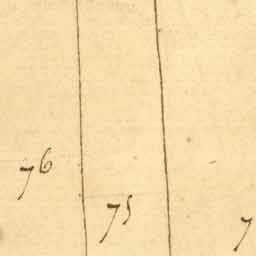 76
75
7